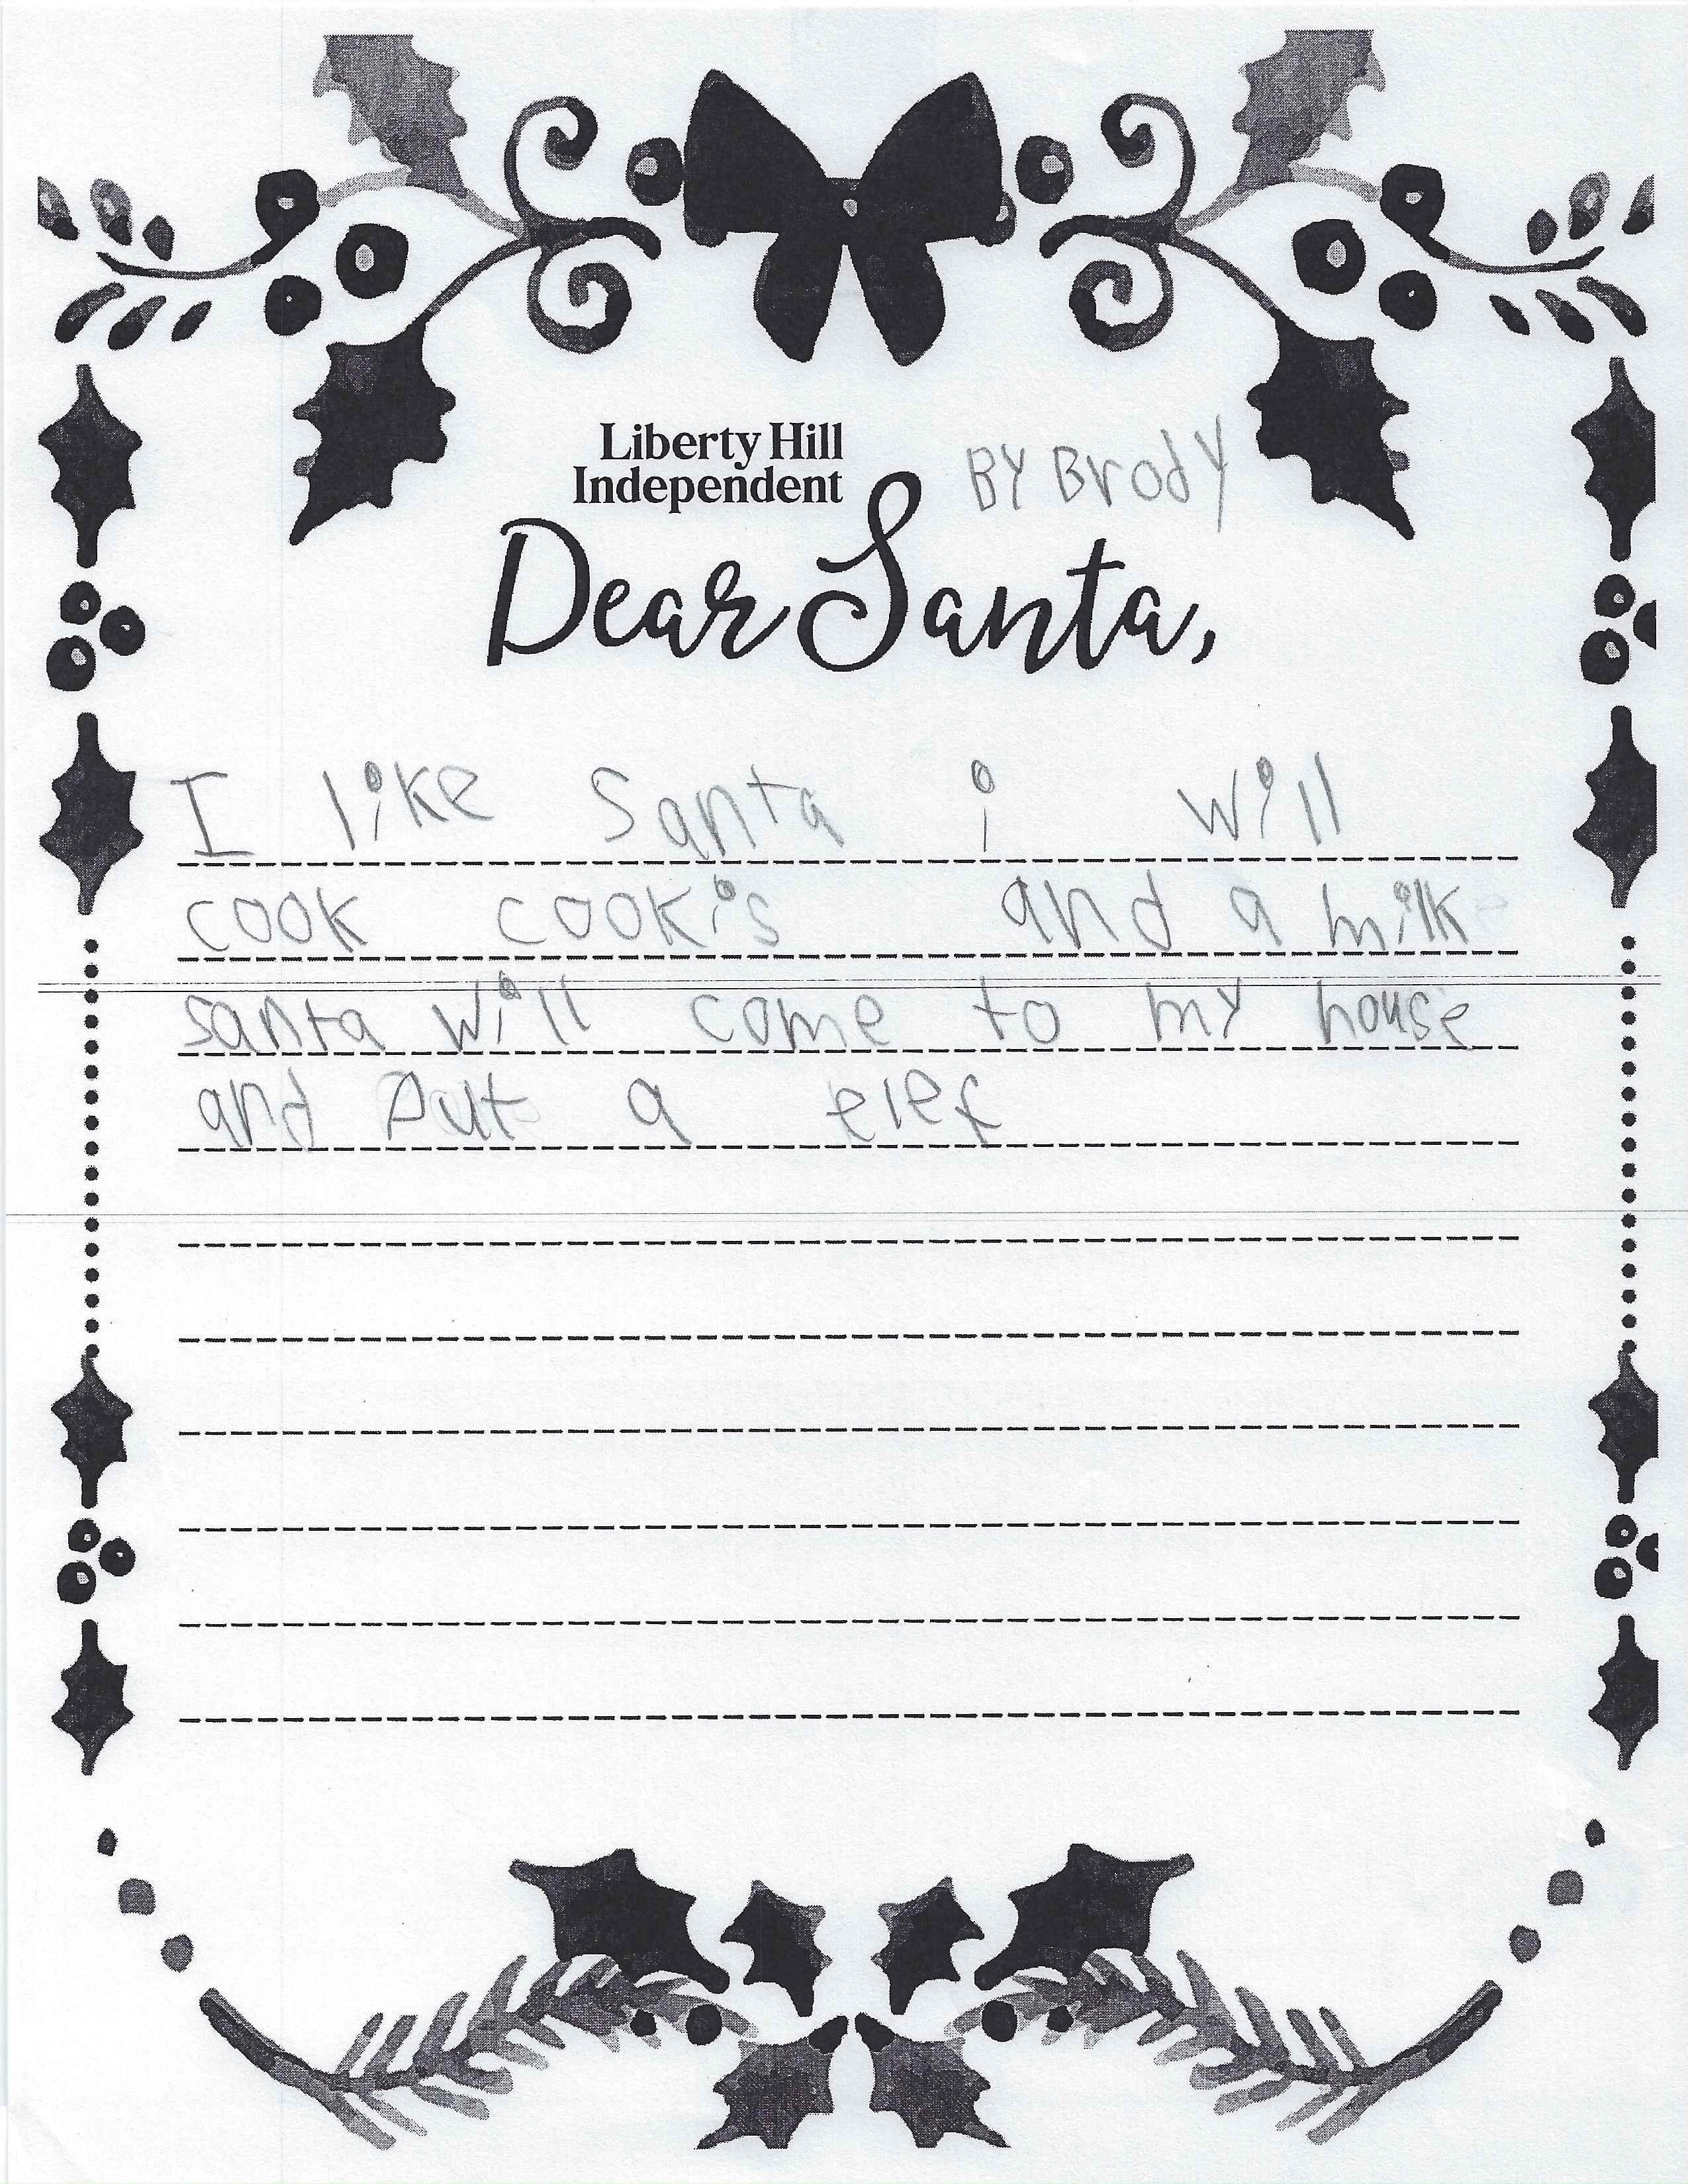 Liberty Hill
Independent
BY Brody
Dear Santa,
I like Santa i will
cook cookis and a milk
santa will come to my house
and put a elef